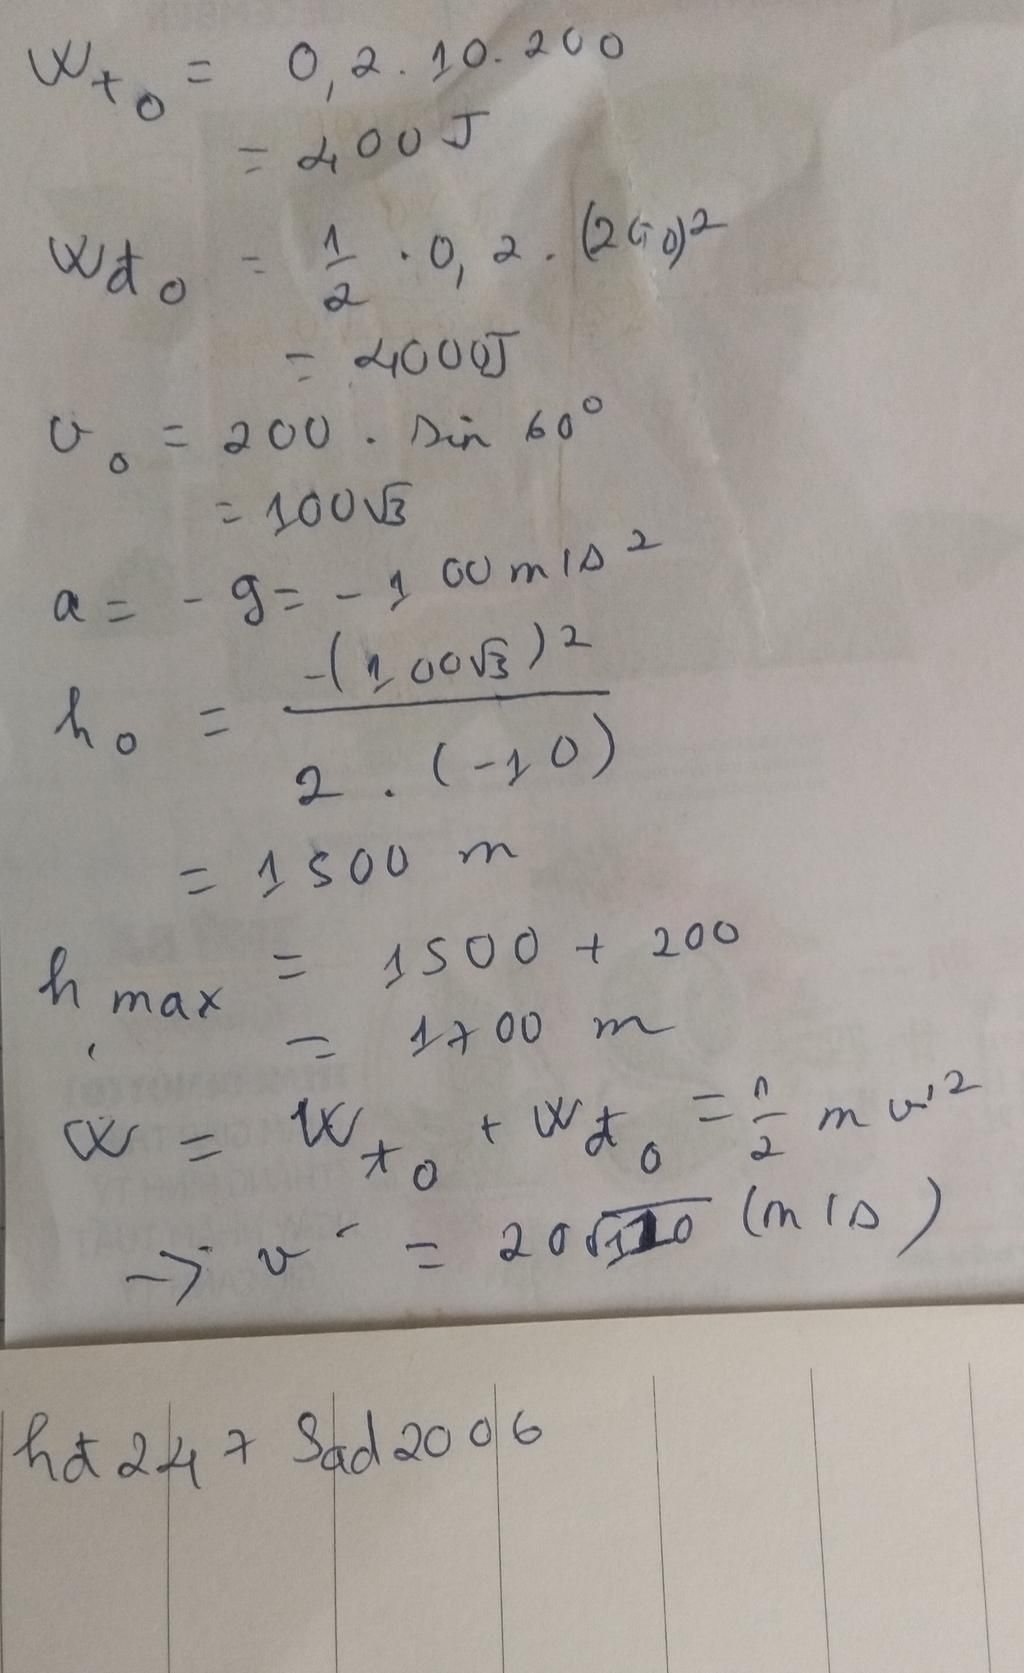 Wt₀ = 0,2.10.200
= 400J
Wđ₀ = 1/2 . 0,2. (200)²
= 4000J
v₀ = 200 . sin 60°
= 100√3
a = -g = -100 m/s²
h₀ = -(100√3)² / 2.(-10)
= 1500 m
h max = 1500 + 200
= 1700 m
W = Wt₀ + Wđ₀ = 1/2 m v'²
→ v' = 20√110 (m/s)
hđ247 Sad2006